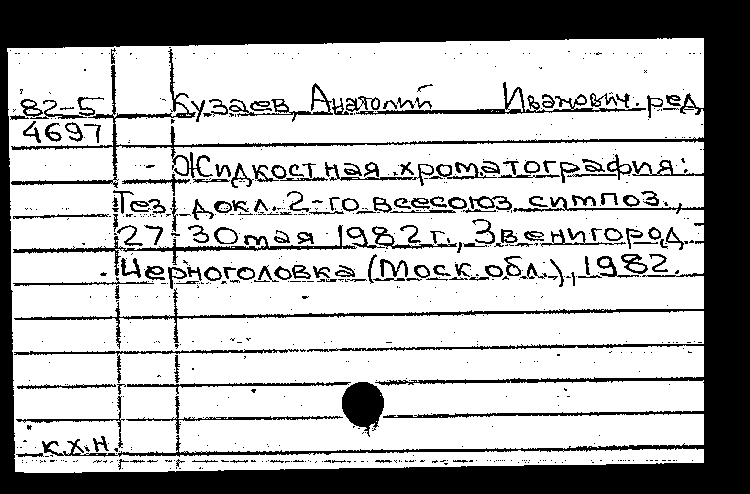 82-5 Кузаев, Анатолий Иванович. ред
4697
Жидкостная хроматография:
Тез. докл. 2-го всесоюз. симпоз.,
27-30 мая 1982 г., Звенигород. -
Черноголовка (Моск. обл.), 1982.
к.х.н.